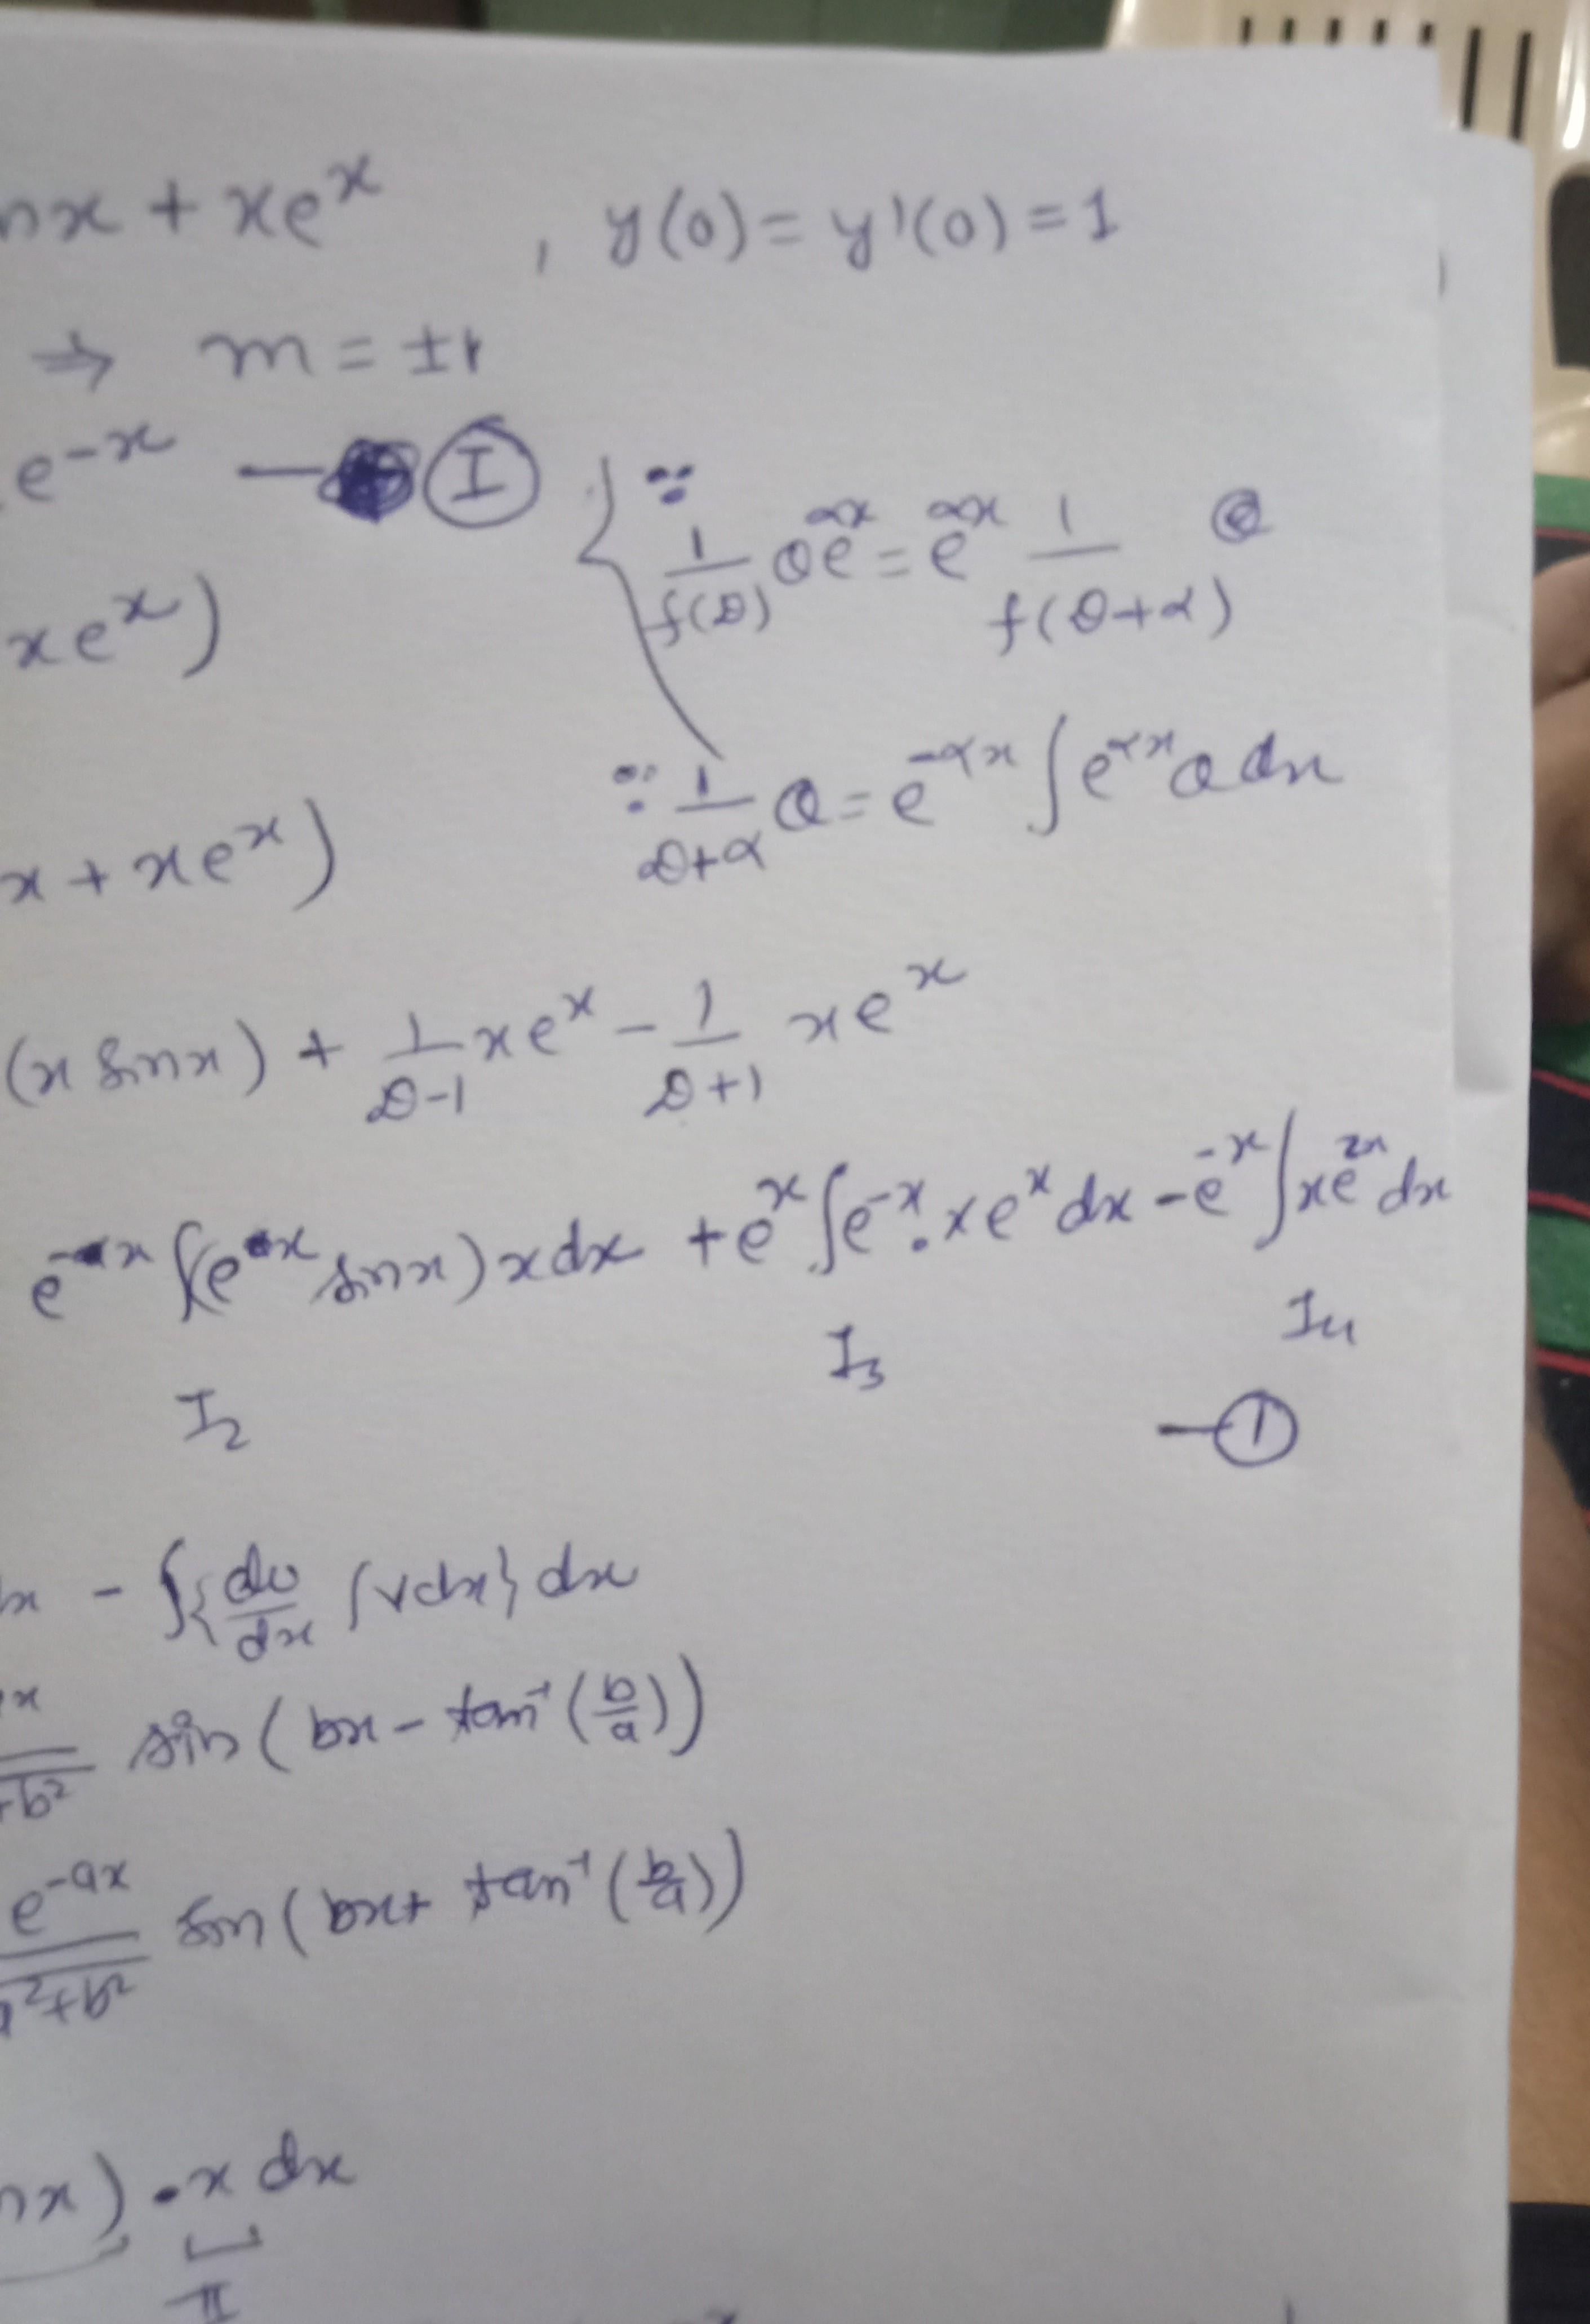 nx + xe^x , y(0) = y'(0) = 1
⇒ m = ±1
e^-x — (I)
∵ 1/f(D) Qe^αx = e^αx 1/f(D+α) Q
xe^x)
∵ 1/(D+α) Q = e^-αx ∫ e^αx Q dx
x + xe^x)
(x sinx) + 1/(D-1) xe^x - 1/(D+1) xe^x
e^-x ∫(e^x sinx) x dx + e^x ∫e^-x . xe^x dx - e^-x ∫xe^2x dx
I2 I3 I4
— (1)
dx - ∫{du/dx ∫vdx} dx
x/+b² sin(bx - tan⁻¹(b/a))
e^-ax/a²+b² sin(bx + tan⁻¹(b/a))
nx) . x dx
II